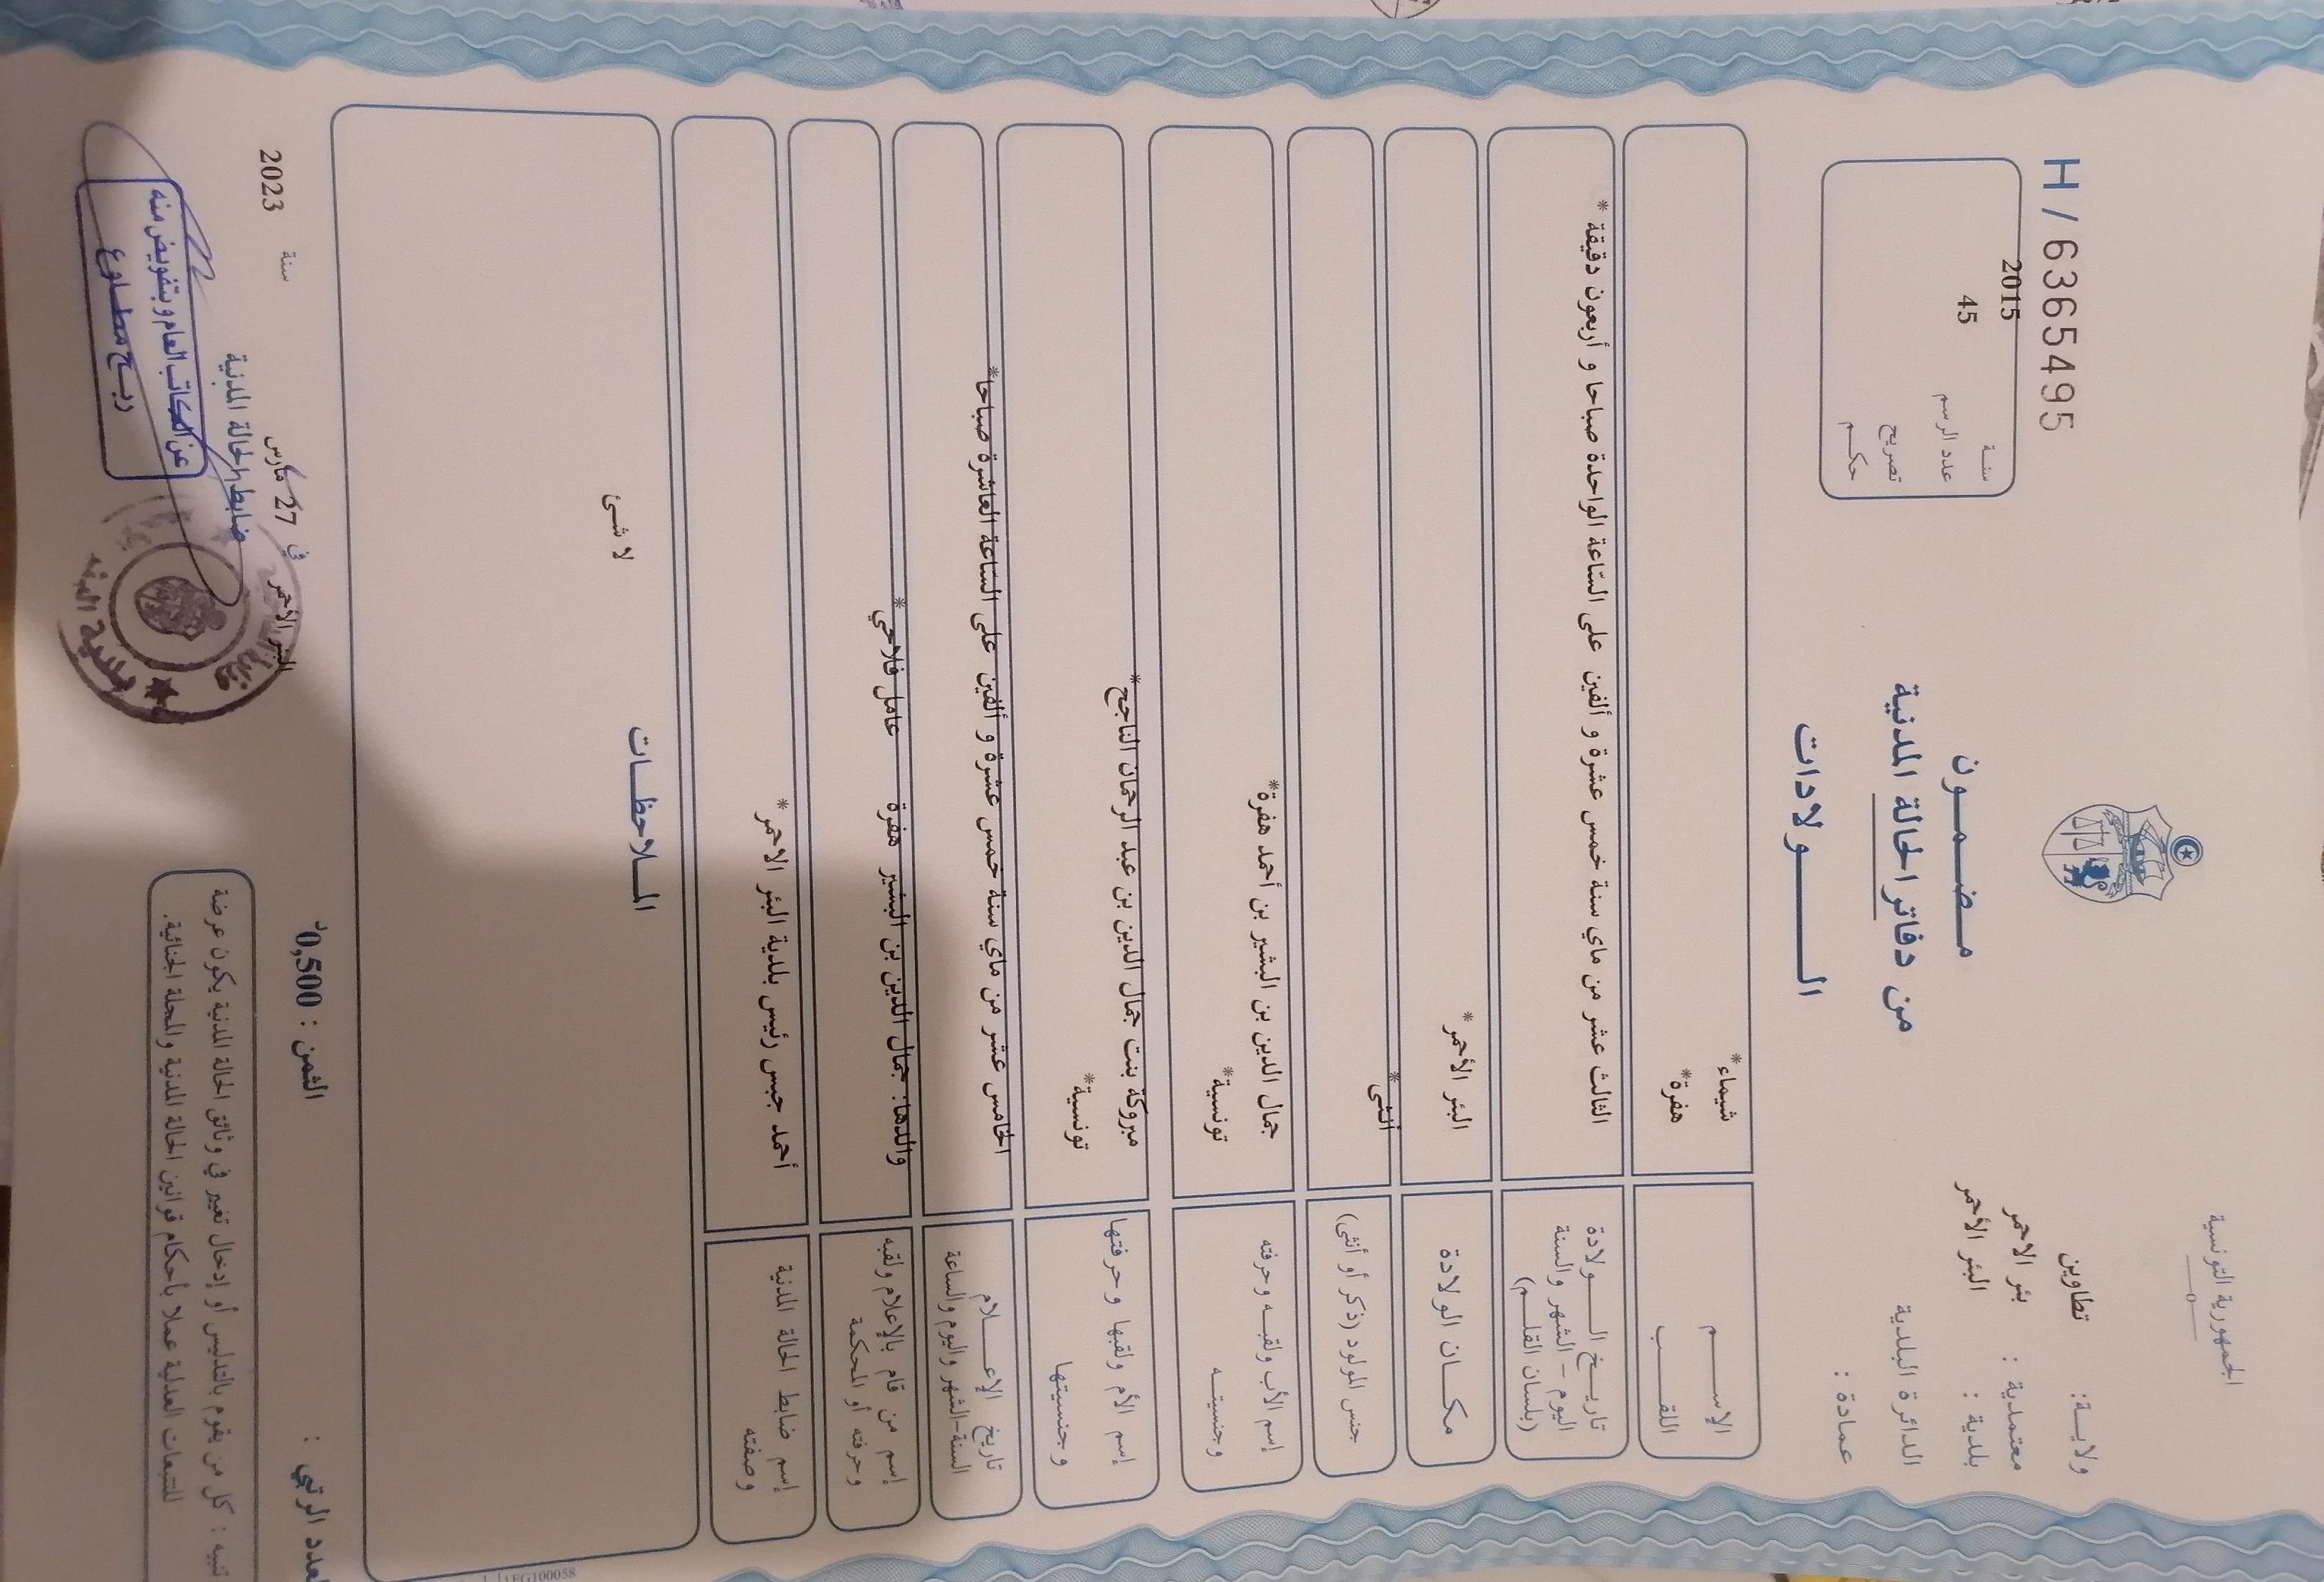 الجمهورية التونسية
ولايـــة: تطاوين
معتمدية : بئر الاحمر
بلدية : البئر الأحمر
الدائرة البلدية
عمادة :
H / 6365495
سنة 2015
عدد الرسم 45
تصريح
حكم
مضمون
من دفاتر الحالة المدنية
الولادات
الإسم شيماء*
اللقب هفرة*
تاريخ الولادة
اليوم - الشهر والسنة
(بلسان القلم)
الثالث عشر من ماي سنة خمس عشرة و ألفين على السّاعة الواحدة صباحا و أربعون دقيقة *
مكان الولادة البئر الأحمر*
جنس المولود (ذكر أو أنثى) أنثى*
إسم الأب ولقبه وحرفته جمال الدين بن البشير بن أحمد هفرة*
وجنسيته تونسية*
إسم الأم ولقبها وحرفتها مبروكة بنت جمال الدين بن عبد الرحمان الناجح*
وجنسيتها تونسية*
تاريخ الإعلام
السنة-الشهر واليوم والساعة
الخامس عشر من ماي سنة خمس عشرة و ألفين على السّاعة العاشرة صباحا*
إسم من قام بالإعلام ولقبه
وحرفته أو المحكمة
والدها: جمال الدين بن البشير هفرة عامل فلاحي*
إسم ضابط الحالة المدنية
وصفته
أحمد حبس رئيس بلدية البئر الاحمر*
الملاحظات
لا شئ
1EG100058
العدد الرتبي :
الثمن : 0,500د
البئر الأحمر في 27 مارس سنة 2023
ضابط الحالة المدنية
عن الكاتب العام و بتفويض منه
ربح مطاوع
تنبيه : كل من يقوم بالتدليس أو إدخال تغيير في وثائق الحالة المدنية يكون عرضة
للتتبعات العدلية عملا بأحكام قوانين الحالة المدنية والمجلة الجنائية.